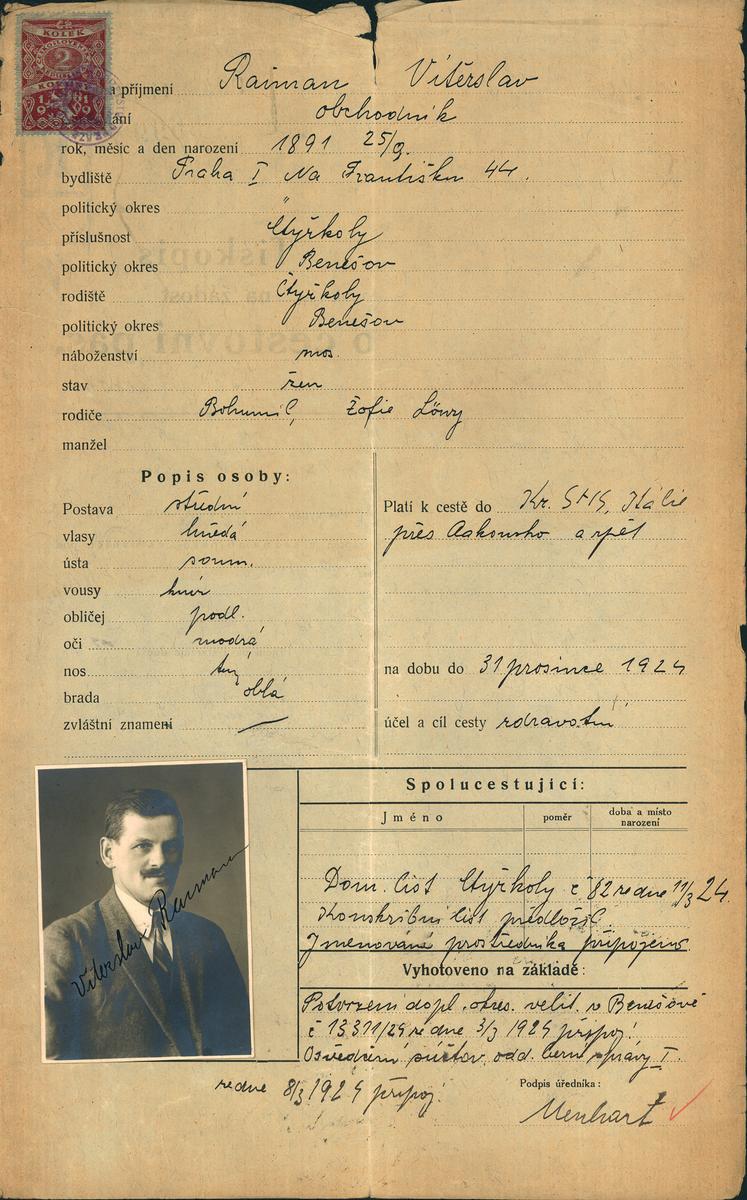 KOLEK
2
a příjmení Raiman Vítěrslav
obchodník
rok, měsíc a den narození 1891 25/9.
bydliště Praha I Na Františku 44.
politický okres "
příslušnost Čtyřkoly
politický okres Benešov
rodiště Čtyřkoly
politický okres Benešov
náboženství mos.
stav žen
rodiče Bohumil, Žofie Löwy
manžel
Popis osoby:
Postava střední
vlasy hnědá
ústa soum.
vousy knír
obličej podl.
oči modrá
nos
brada oblá
zvláštní znamení —
Platí k cestě do Kr. SHS, Itálie
přes Rakousko a zpět
na dobu do 31 prosince 1924
účel a cíl cesty zdravotní
Spolucestující:
Jméno poměr doba a místo narození
Dom. list Čtyřkoly č 82 ze dne 11/3 24.
Konskribní list předložil.
Jmenování prostředníka připojeno.
Vyhotoveno na základě:
Potvrzení dopl. okres. velit. v Benešově
č 13311/24 ze dne 3/3 1924 připoj.
Osvědčení účtov. odd. bern. správy I.
ze dne 8/3 1924 připoj.
Podpis úředníka:
Menhart
Vítěrslav Raiman